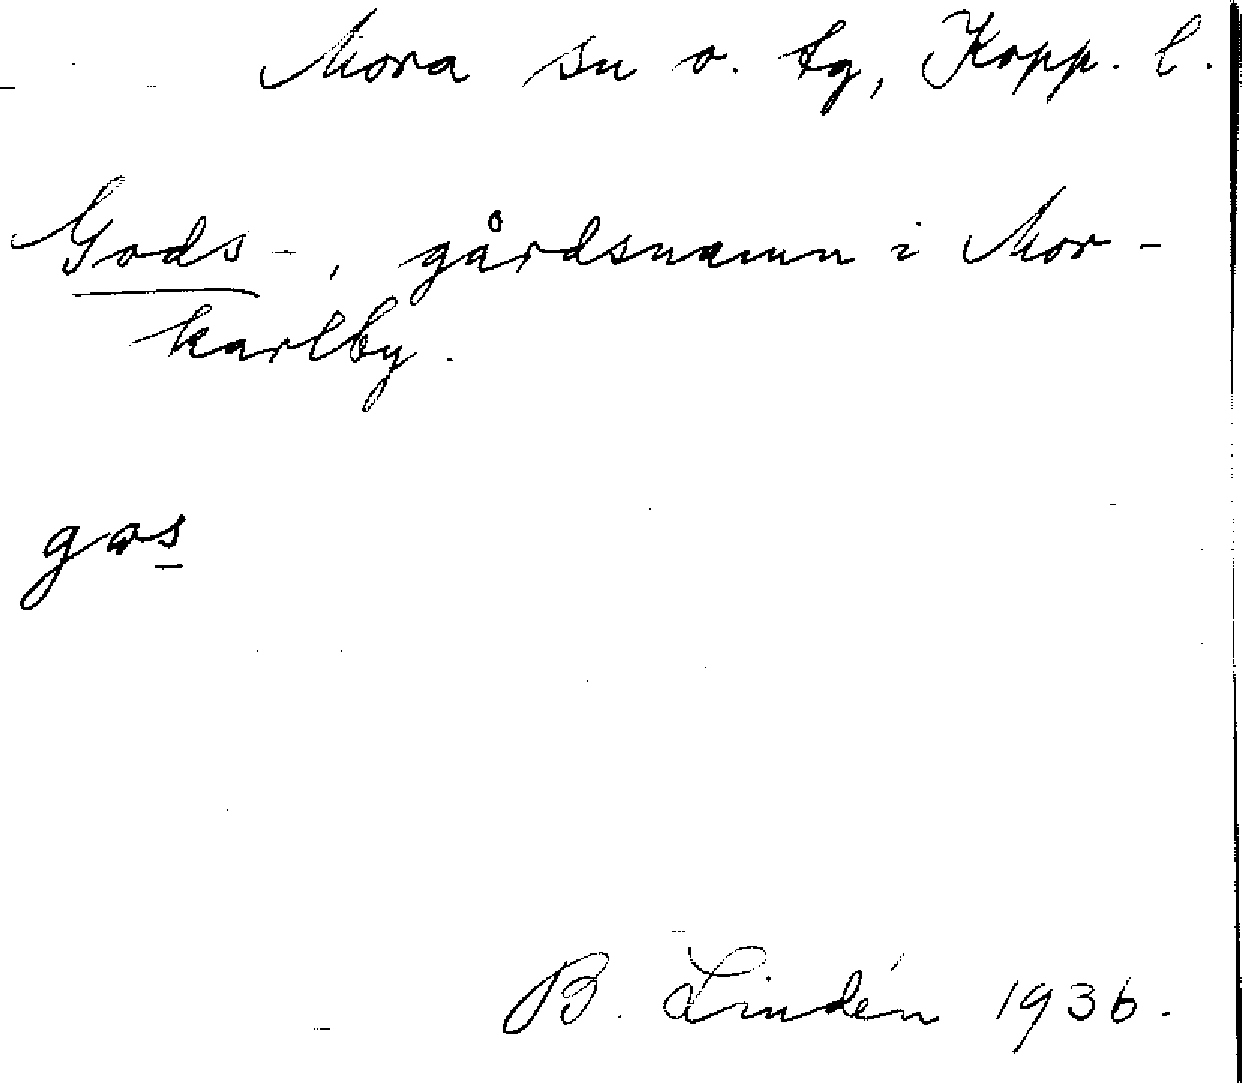 Mora sn o. tg, Kopp. l.
Gods-, gårdsnamn i Mor-
karlby.
gos
B. Lindén 1936.